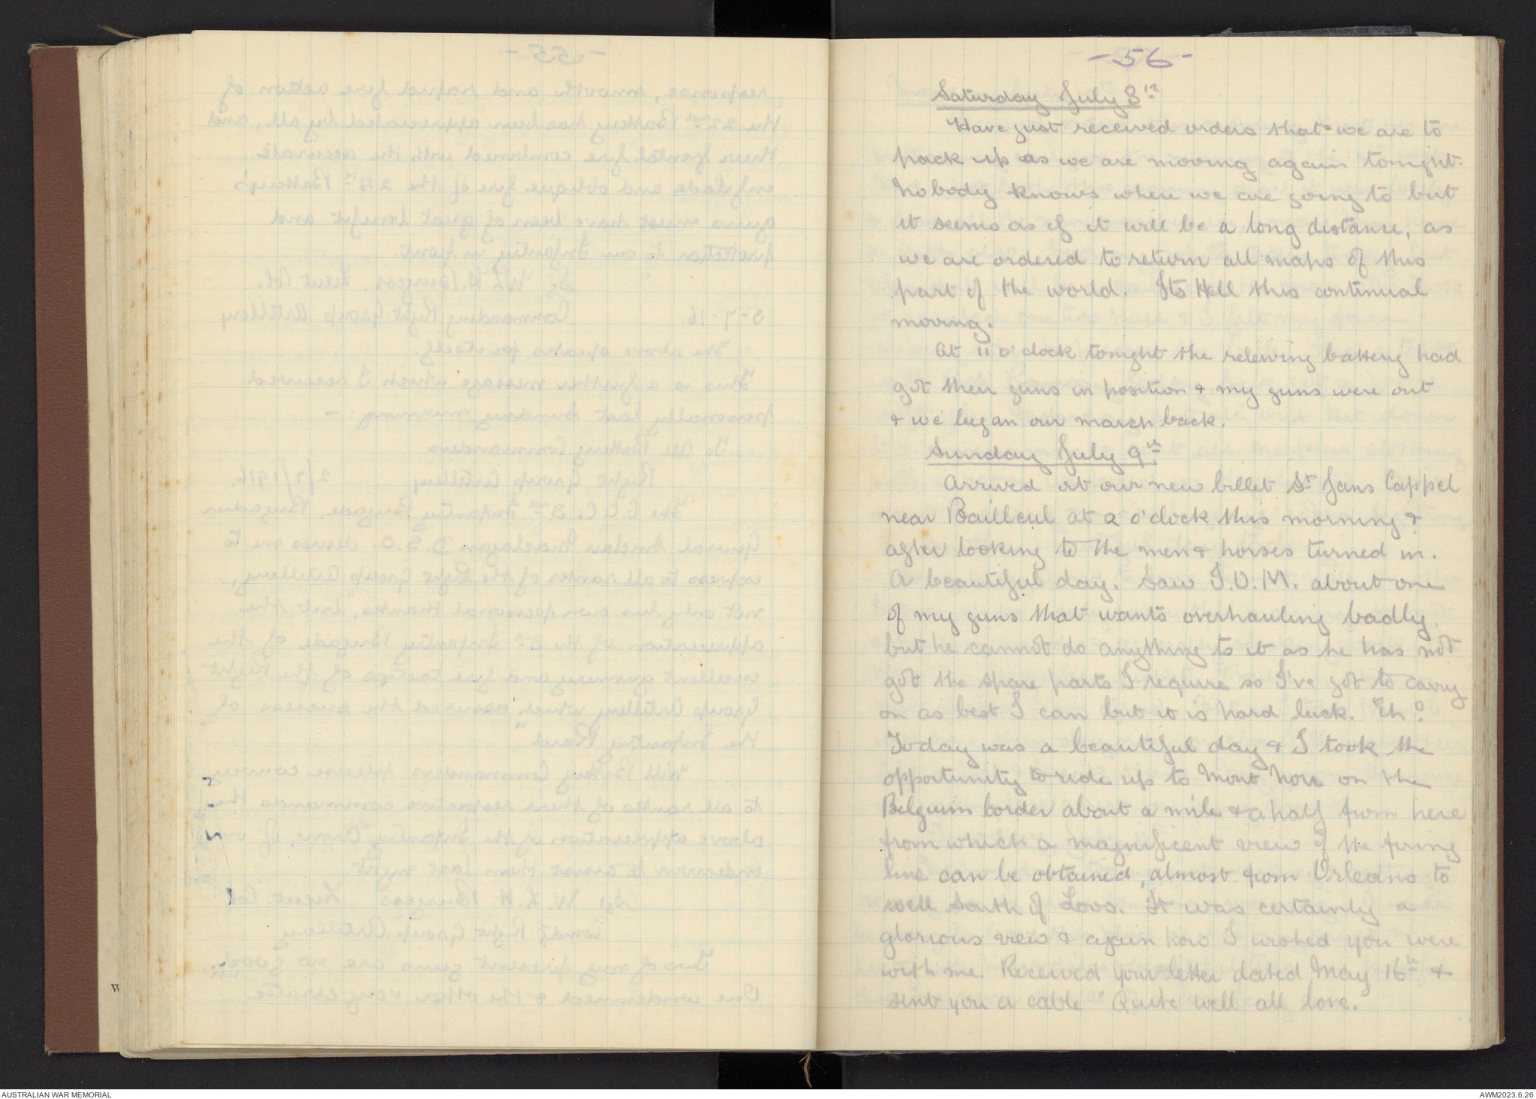 - 56 -
Saturday July 8th
Have just received orders that we are to
pack up as we are moving again tonight.
Nobody knows where we are going to but
it seems as if it will be a long distance, as
we are ordered to return all maps of this
part of the world. Its Hell this continual
moving.
At 11 o'clock tonight the relieving battery had
got their guns in position & my guns were out
& we began our march back.
Sunday July 9th
Arrived at our new billet St Jans Cappel
near Bailleul at 2 o'clock this morning &
after looking to the men & horses turned in.
A beautiful day. Saw I.O.M. about one
of my guns that wants overhauling badly.
but he cannot do anything to it as he has not
got the spare parts I require so I've got to carry
on as best I can but it is hard luck. Eh?
Today was a beautiful day & I took the
opportunity to ride up to Mont Noir on the
Belguim border about a mile & a half from here
from which a magnificent view of the firing
line can be obtained, almost from Orleans to
well South of Loos. It was certainly a
glorious view & again how I wished you were
with me. Received your letter dated May 16th &
sent you a cable "Quite well all love.
W
AUSTRALIAN WAR MEMORIAL
AWM2023.6.26